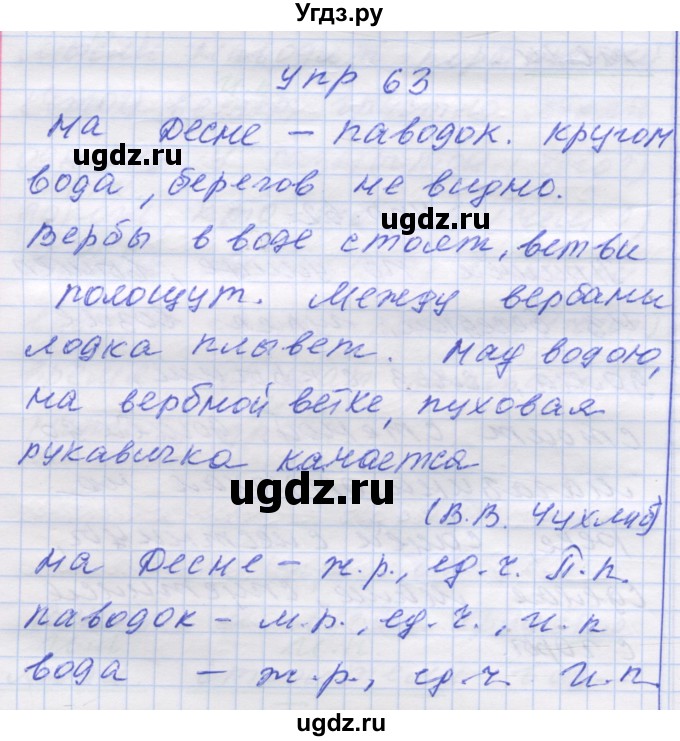 Угдз.ру
упр 63
На Десне – паводок. Кругом
ugdz.ru
вода, берегов не видно.
ugdz.ru
Вербы в воде стоят, ветви
полощут. Между вербами
лодка плывет. Над водою,
на вербной ветке, пуховая
рукавичка качается
ugdz.ru
(В.В. Чухлиб)
На Десне – ж.р., ед.ч. П.п.
паводок – м.р., ед.ч., И.п
вода – ж.р., ед.ч. И.п.
ugdz.ru